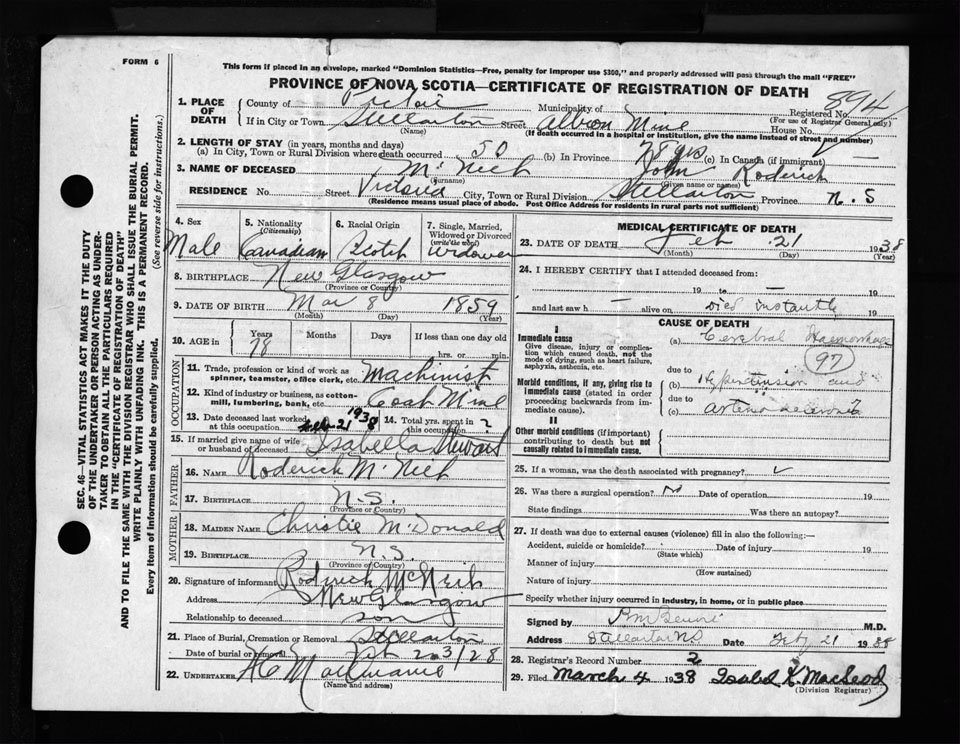 FORM 6
This form if placed in an envelope, marked "Dominion Statistics—Free, penalty for improper use $300," and properly addressed will pass through the mail "FREE"
PROVINCE OF NOVA SCOTIA—CERTIFICATE OF REGISTRATION OF DEATH
894
1. PLACE OF DEATH
County of Pictou Municipality of Registered No.
(For use of Registrar General only)
If in City or Town Stellarton Street Albion Mine House No.
(Name) (If death occurred in a hospital or institution, give the name instead of street and number)
2. LENGTH OF STAY (in years, months and days)
(a) In City, Town or Rural Division where death occurred 50 (b) In Province 78 yrs (c) In Canada (if immigrant) —
3. NAME OF DECEASED McNeil John Roderick
(Surname) (Given name or names)
RESIDENCE No. Street Victoria City, Town or Rural Division Stellarton Province N.S
(Residence means usual place of abode. Post Office Address for residents in rural parts not sufficient)
4. Sex
Male
5. Nationality
(Citizenship)
Canadian
6. Racial Origin
Scotch
7. Single, Married, Widowed or Divorced
(write the word)
Widower
8. BIRTHPLACE New Glasgow
(Province or Country)
9. DATE OF BIRTH Mar 8 1859
(Month) (Day) (Year)
10. AGE in Years Months Days If less than one day
78 hrs. or min.
OCCUPATION
11. Trade, profession or kind of work as spinner, teamster, office clerk, etc. Machinist
12. Kind of industry or business, as cotton-mill, lumbering, bank, etc. Coal Mine
13. Date deceased last worked at this occupation Feb 21 1938
14. Total yrs. spent in this occupation ?
15. If married give name of wife or husband of deceased Isabella
FATHER
16. NAME Roderick McNeil
17. BIRTHPLACE N.S.
(Province or Country)
MOTHER
18. MAIDEN NAME Christie McDonald
19. BIRTHPLACE N.S.
(Province or Country)
20. Signature of informant Roderick McNeil
Address New Glasgow
Relationship to deceased son
21. Place of Burial, Cremation or Removal Stellarton
Date of burial or removal Feb 23/28
22. UNDERTAKER
(Name and address)
MEDICAL CERTIFICATE OF DEATH
23. DATE OF DEATH Feb 21 1938
(Month) (Day) (Year)
24. I HEREBY CERTIFY that I attended deceased from:
19 to — 19
and last saw h — alive on, Died instantly 19
CAUSE OF DEATH
I
Immediate cause
Give disease, injury or complication which caused death, not the mode of dying, such as heart failure, asphyxia, asthenia, etc.
(a) Cerebral Haemorrhage
97
due to
Morbid conditions, if any, giving rise to immediate cause (stated in order proceeding backwards from immediate cause).
(b) Hypertension and
due to
(c) arterio sclerosis
II
Other morbid conditions (if important) contributing to death but not causally related to immediate cause.
25. If a woman, was the death associated with pregnancy?
26. Was there a surgical operation? N Date of operation 19
State findings Was there an autopsy?
27. If death was due to external causes (violence) fill in also the following:—
Accident, suicide or homicide? Date of injury 19
(State which)
Manner of injury
(How sustained)
Nature of injury
Specify whether injury occurred in industry, in home, or in public place
Signed by M.D.
Address Stellarton N.S Date Feby 21 1938
28. Registrar's Record Number 2
29. Filed March 4 1938 Isabel K. MacLeod
(Division Registrar)
SEC. 46—VITAL STATISTICS ACT MAKES IT THE DUTY OF THE UNDERTAKER OR PERSON ACTING AS UNDERTAKER TO OBTAIN ALL THE PARTICULARS REQUIRED IN THE "CERTIFICATE OF REGISTRATION OF DEATH" AND TO FILE THE SAME WITH THE DIVISION REGISTRAR WHO SHALL ISSUE THE BURIAL PERMIT.
WRITE PLAINLY WITH UNFADING INK. THIS IS A PERMANENT RECORD.
Every item of information should be carefully supplied. (See reverse side for instructions.)